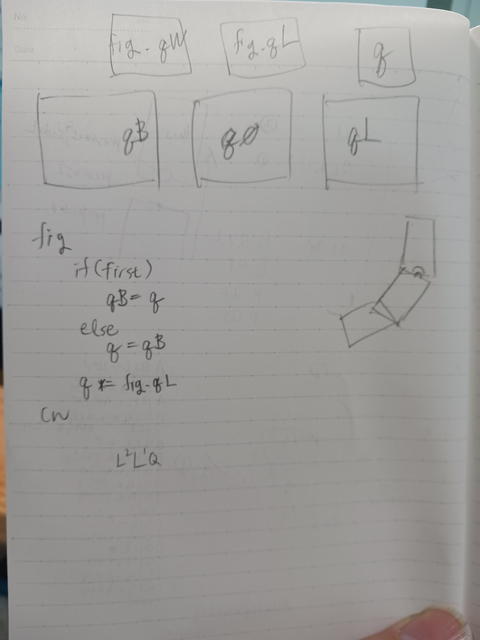 No.
Date
fig.qW fig.qL q
qB qø qL
fig
if(first)
qB = q
else
q = qB
q *= fig.qL
CW
L²L¹Q